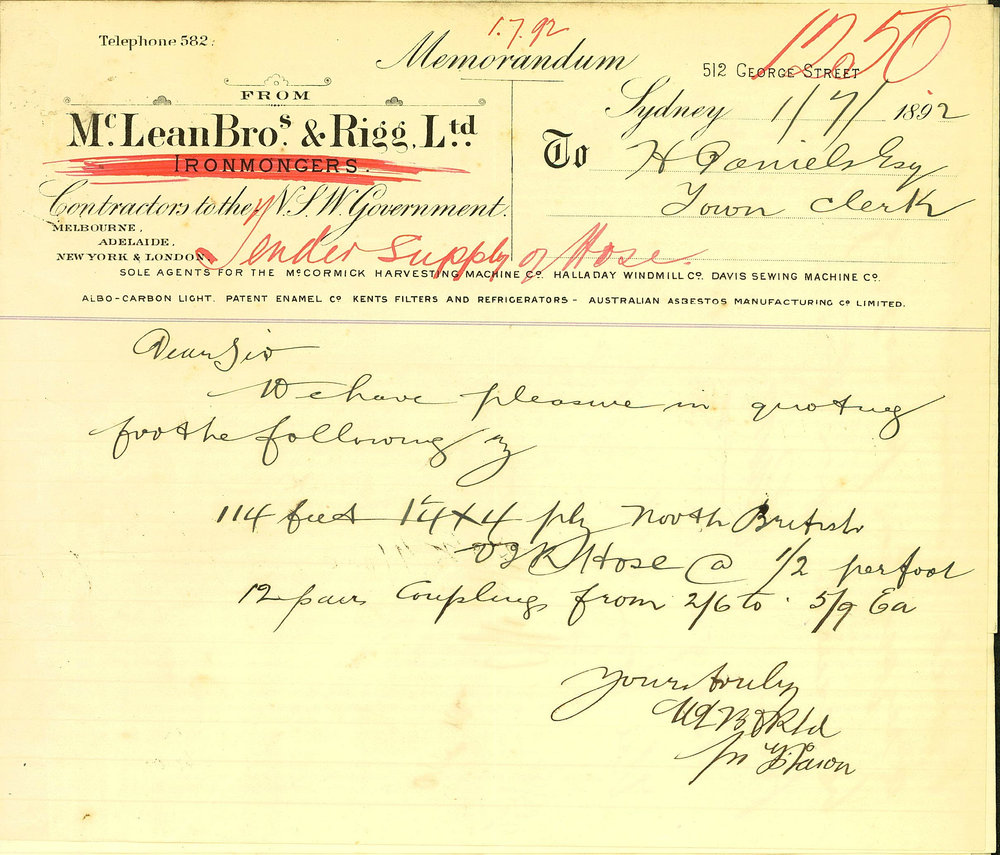 Telephone 582.
1.7.92
Memorandum
1250
512 GEORGE STREET
FROM
Sydney 1/7/ 1892
Mc. Lean Bros. & Rigg, Ltd.
To H Daniels Esq
IRONMONGERS.
Town Clerk
Contractors to the N.S.W. Government.
MELBOURNE,
ADELAIDE,
NEW YORK & LONDON.
Tender Supply of Hose.
SOLE AGENTS FOR THE McCORMICK HARVESTING MACHINE Co. HALLADAY WINDMILL Co. DAVIS SEWING MACHINE Co.
ALBO-CARBON LIGHT. PATENT ENAMEL Co KENTS FILTERS AND REFRIGERATORS - AUSTRALIAN ASBESTOS MANUFACTURING Co LIMITED.
Dear Sir
We have pleasure in quoting
for the following
114 feet 4 ply North British
Hose @ 1/2 per foot
12 pairs Couplings from 2/6 to 5/9 Ea
Yours truly
McLB & R Ld